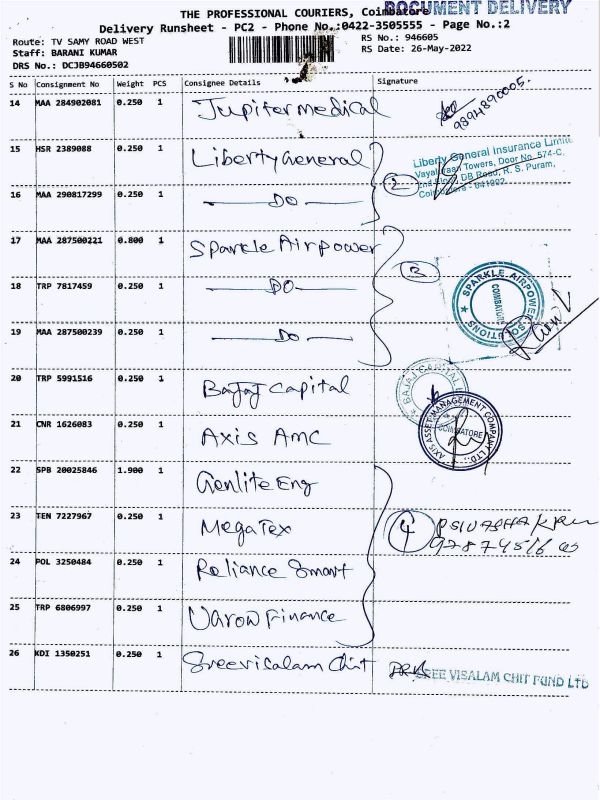 THE PROFESSIONAL COURIERS, Coimbatore
DOCUMENT DELIVERY
Delivery Runsheet - PC2 - Phone No.:0422-3505555 - Page No.:2
Route: TV SAMY ROAD WEST
RS No.: 946605
Staff: BARANI KUMAR
RS Date: 26-May-2022
DRS No.: DCJB94660502
S No Consignment No Weight PCS Consignee Details Signature
14 MAA 284902081 0.250 1 Jupiter medical
9894890005.
15 HSR 2389088 0.250 1 Liberty General
Liberty General Insurance Limite
Towers, Door No. 574-C,
DB Road, R. S. Puram,
16 MAA 290817299 0.250 1 DO
2
17 MAA 287500221 0.800 1 Sparkle Airpower
3
18 TRP 7817459 0.250 1 DO
SPARKLE AIRPOWER SOLUTIONS
COIMBATORE
19 MAA 287500239 0.250 1 DO
20 TRP 5991516 0.250 1 Bajaj Capital
BAJAJ CAPITAL
21 CNR 1626083 0.250 1 Axis AMC
AXIS ASSET MANAGEMENT COMPANY LTD.
COIMBATORE
22 SPB 20025846 1.900 1 Genlite Eng
23 TEN 7227967 0.250 1 MegaTex
4
24 POL 3250484 0.250 1 Reliance Smart
25 TRP 6806997 0.250 1 Varow Finance
26 KDI 1350251 0.250 1 Sreevisalam Chit
SREE VISALAM CHIT FUND LTD